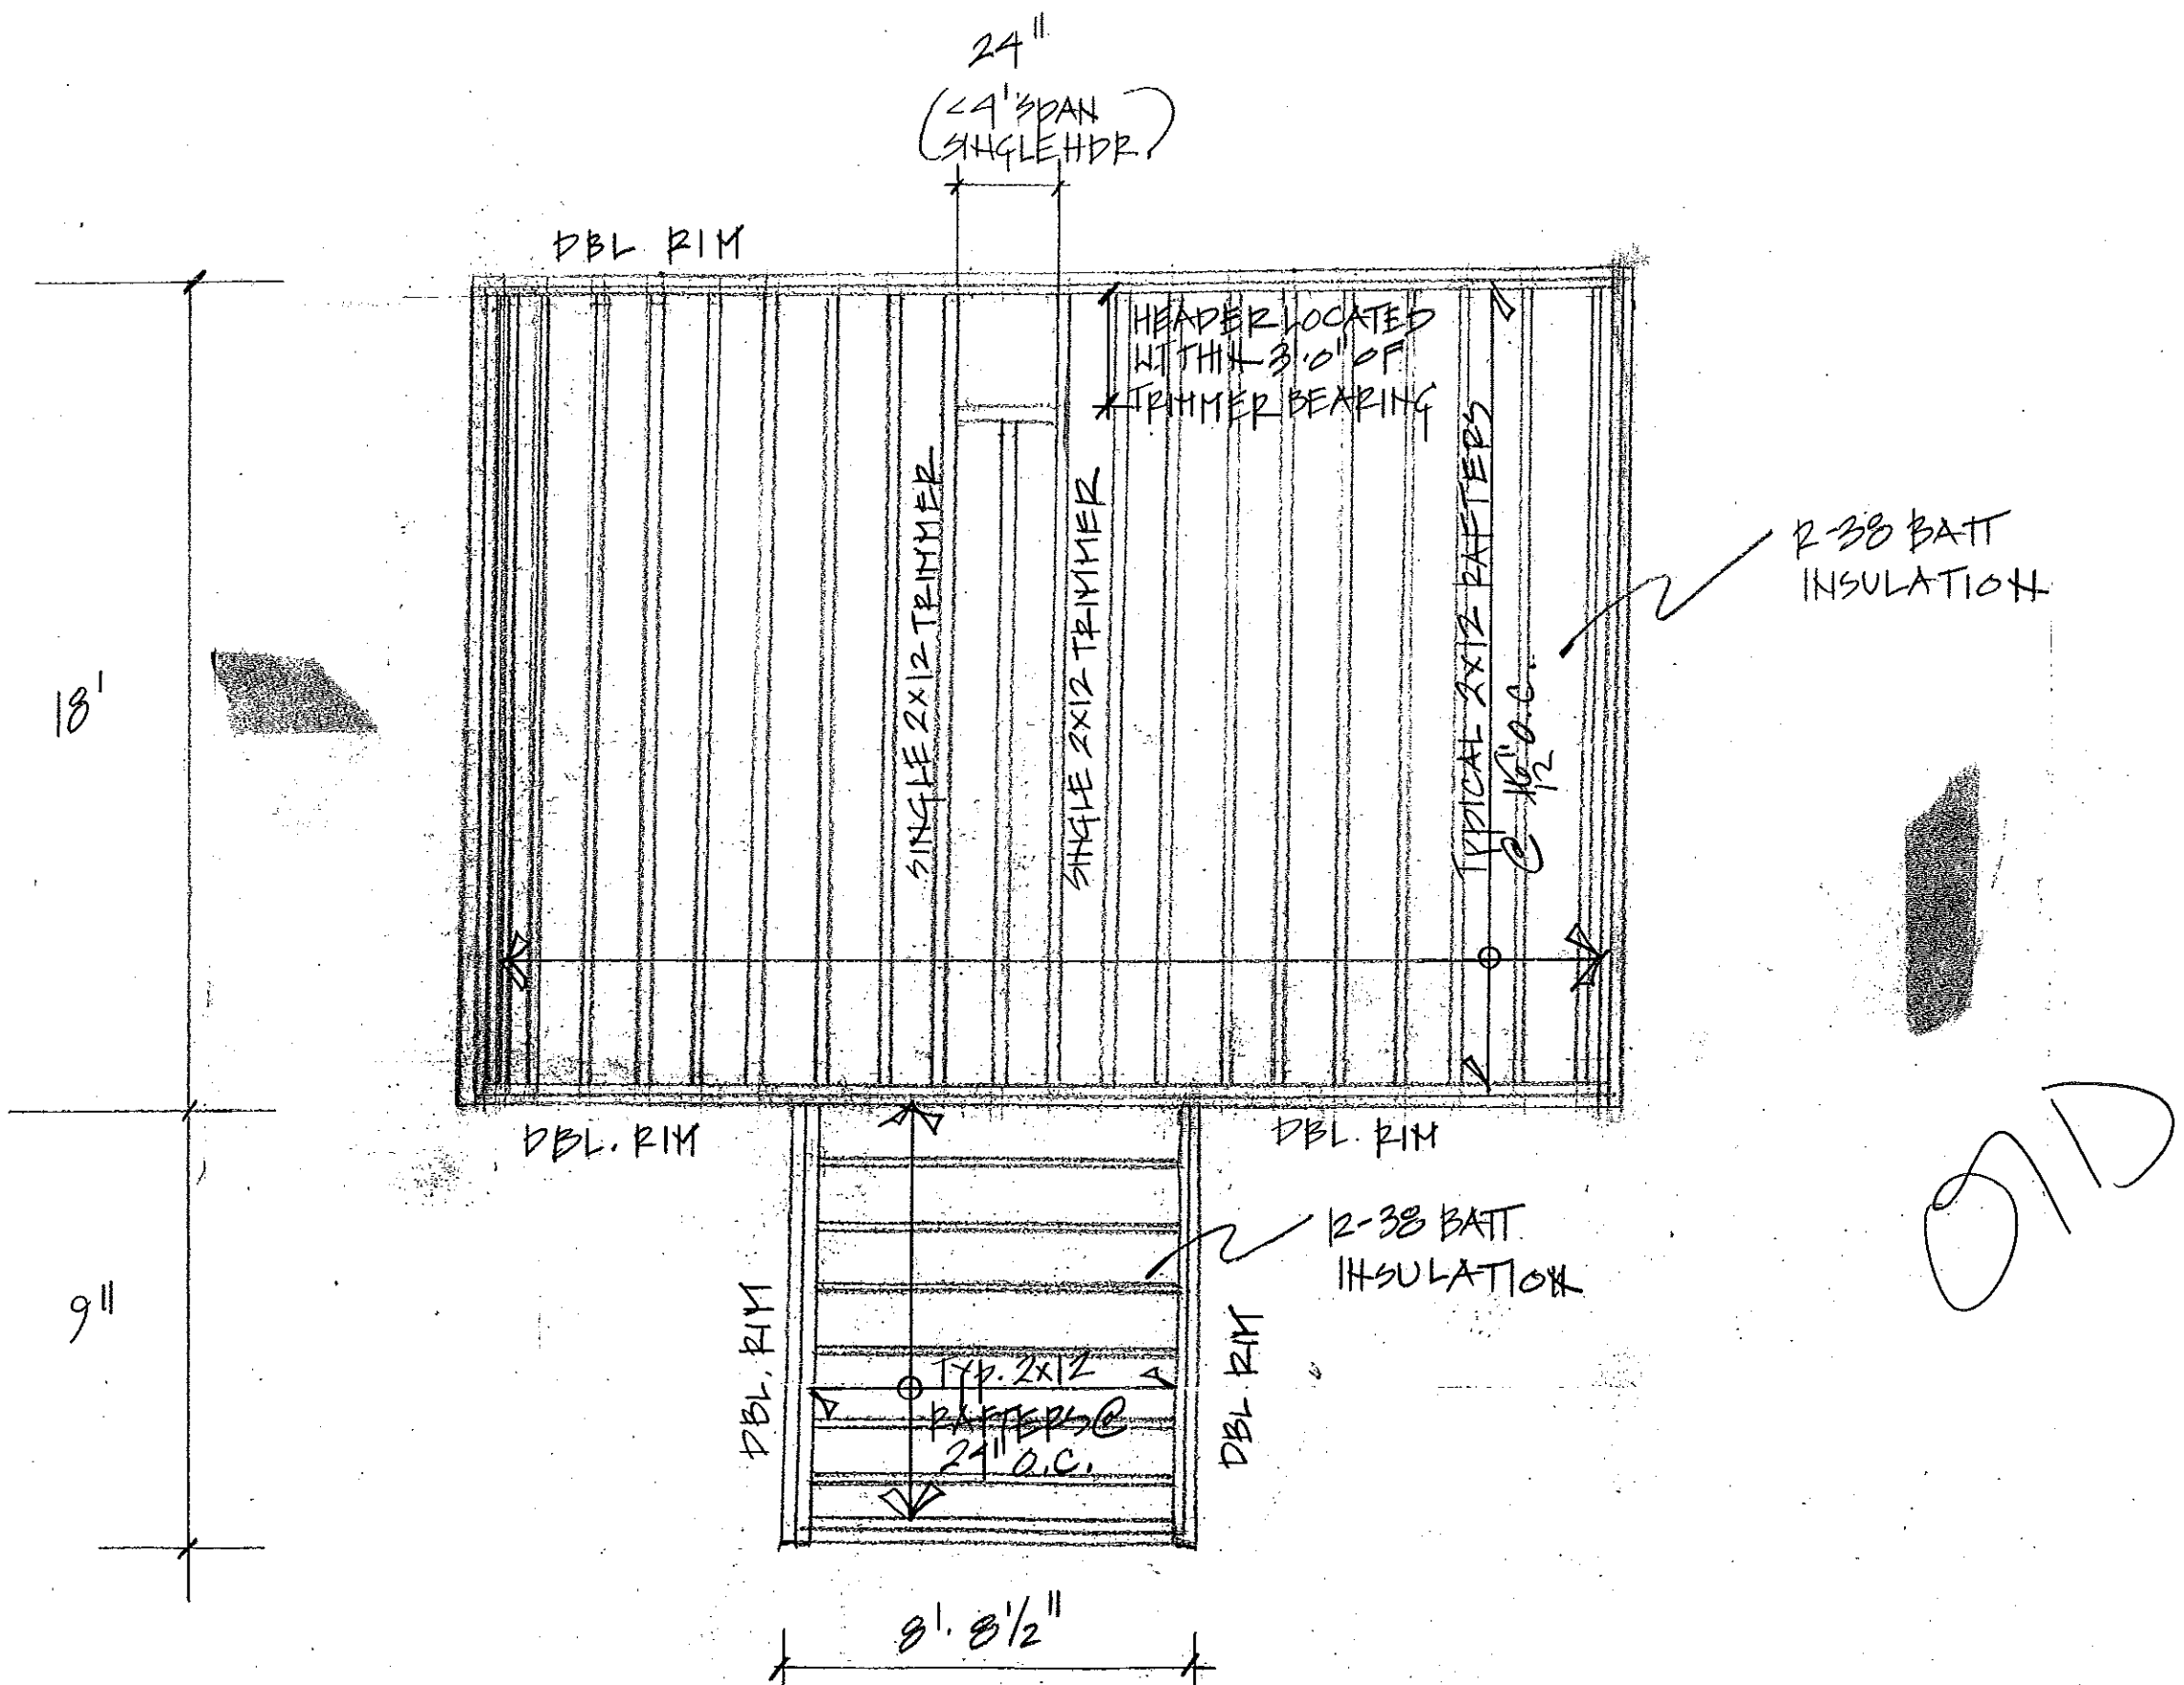 24"
(<4' SPAN
SINGLE HDR.)
DBL. RIM
HEADER LOCATED
WITHIN 3'.0" OF
TRIMMER BEARING
SINGLE 2X12 TRIMMER
SINGLE 2X12 TRIMMER
TYPICAL 2X12 RAFTERS
@ 16" O.C.
12
R-38 BATT
INSULATION
18'
DBL. RIM
DBL. RIM
R-38 BATT
INSULATION
9"
DBL. RIM
TYP. 2X12
RAFTERS @
24" O.C.
DBL. RIM
8'. 8 1/2"